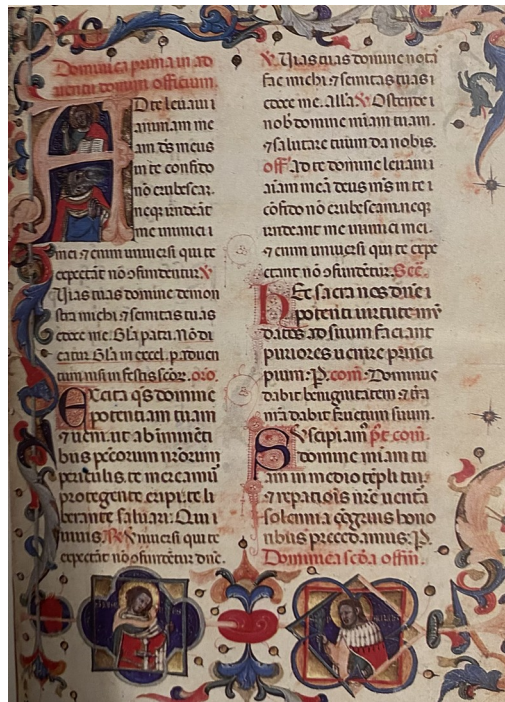 Dominica prima in ad
uentu domini officium.
AD te leuaui
animam me
am ds meus
in te confido
no erubescar.
neqr irrideat
me inimici i
mei ⁊ enim uniuersi qui te
expectat no ofundentur. V
Uias tuas domine demon
stra michi ⁊ semitas tuas
edoce me. Gla patri. No di
catur Gla in excel. p aduen
tum nisi in festis scor. oro.
Excita qs domine
potentiam tuam
⁊ ueni. ut ab immineti
bus pccorum nrorum
periculis. te mereamur
protegente eripi. te li
berante saluari. Qui
uiuis. R Uniuersi qui te
expectat no ofundetur dne.
V. Uias tuas domine nota
fac michi. ⁊ semitas tuas i
edoce me. Alla V Ostende i
nob domine miam tuam.
⁊ salutare tuum da nobis.
off. Ad te domine leuaui i
aiam mea deus ms in te i
cofido no erubescam. neqr
irrideant me inimici mei.
⁊ enim uniuersi qui te expe
ctant no ofundetur. Sec.
Hec sacra nos dne i
potenti uirtute mu
datos ad suum faciant
puriores uenire princi
pium. P. com. Dominus
dabit benignitatem ⁊ tra
nra dabit fructum suum.
Suscipiam pt com.
domine miam tu
am in medio templi tui
⁊ repatiois nre uentura
solemnia cogruis hono
ribus precedamus. P.
Dominica scda offm.